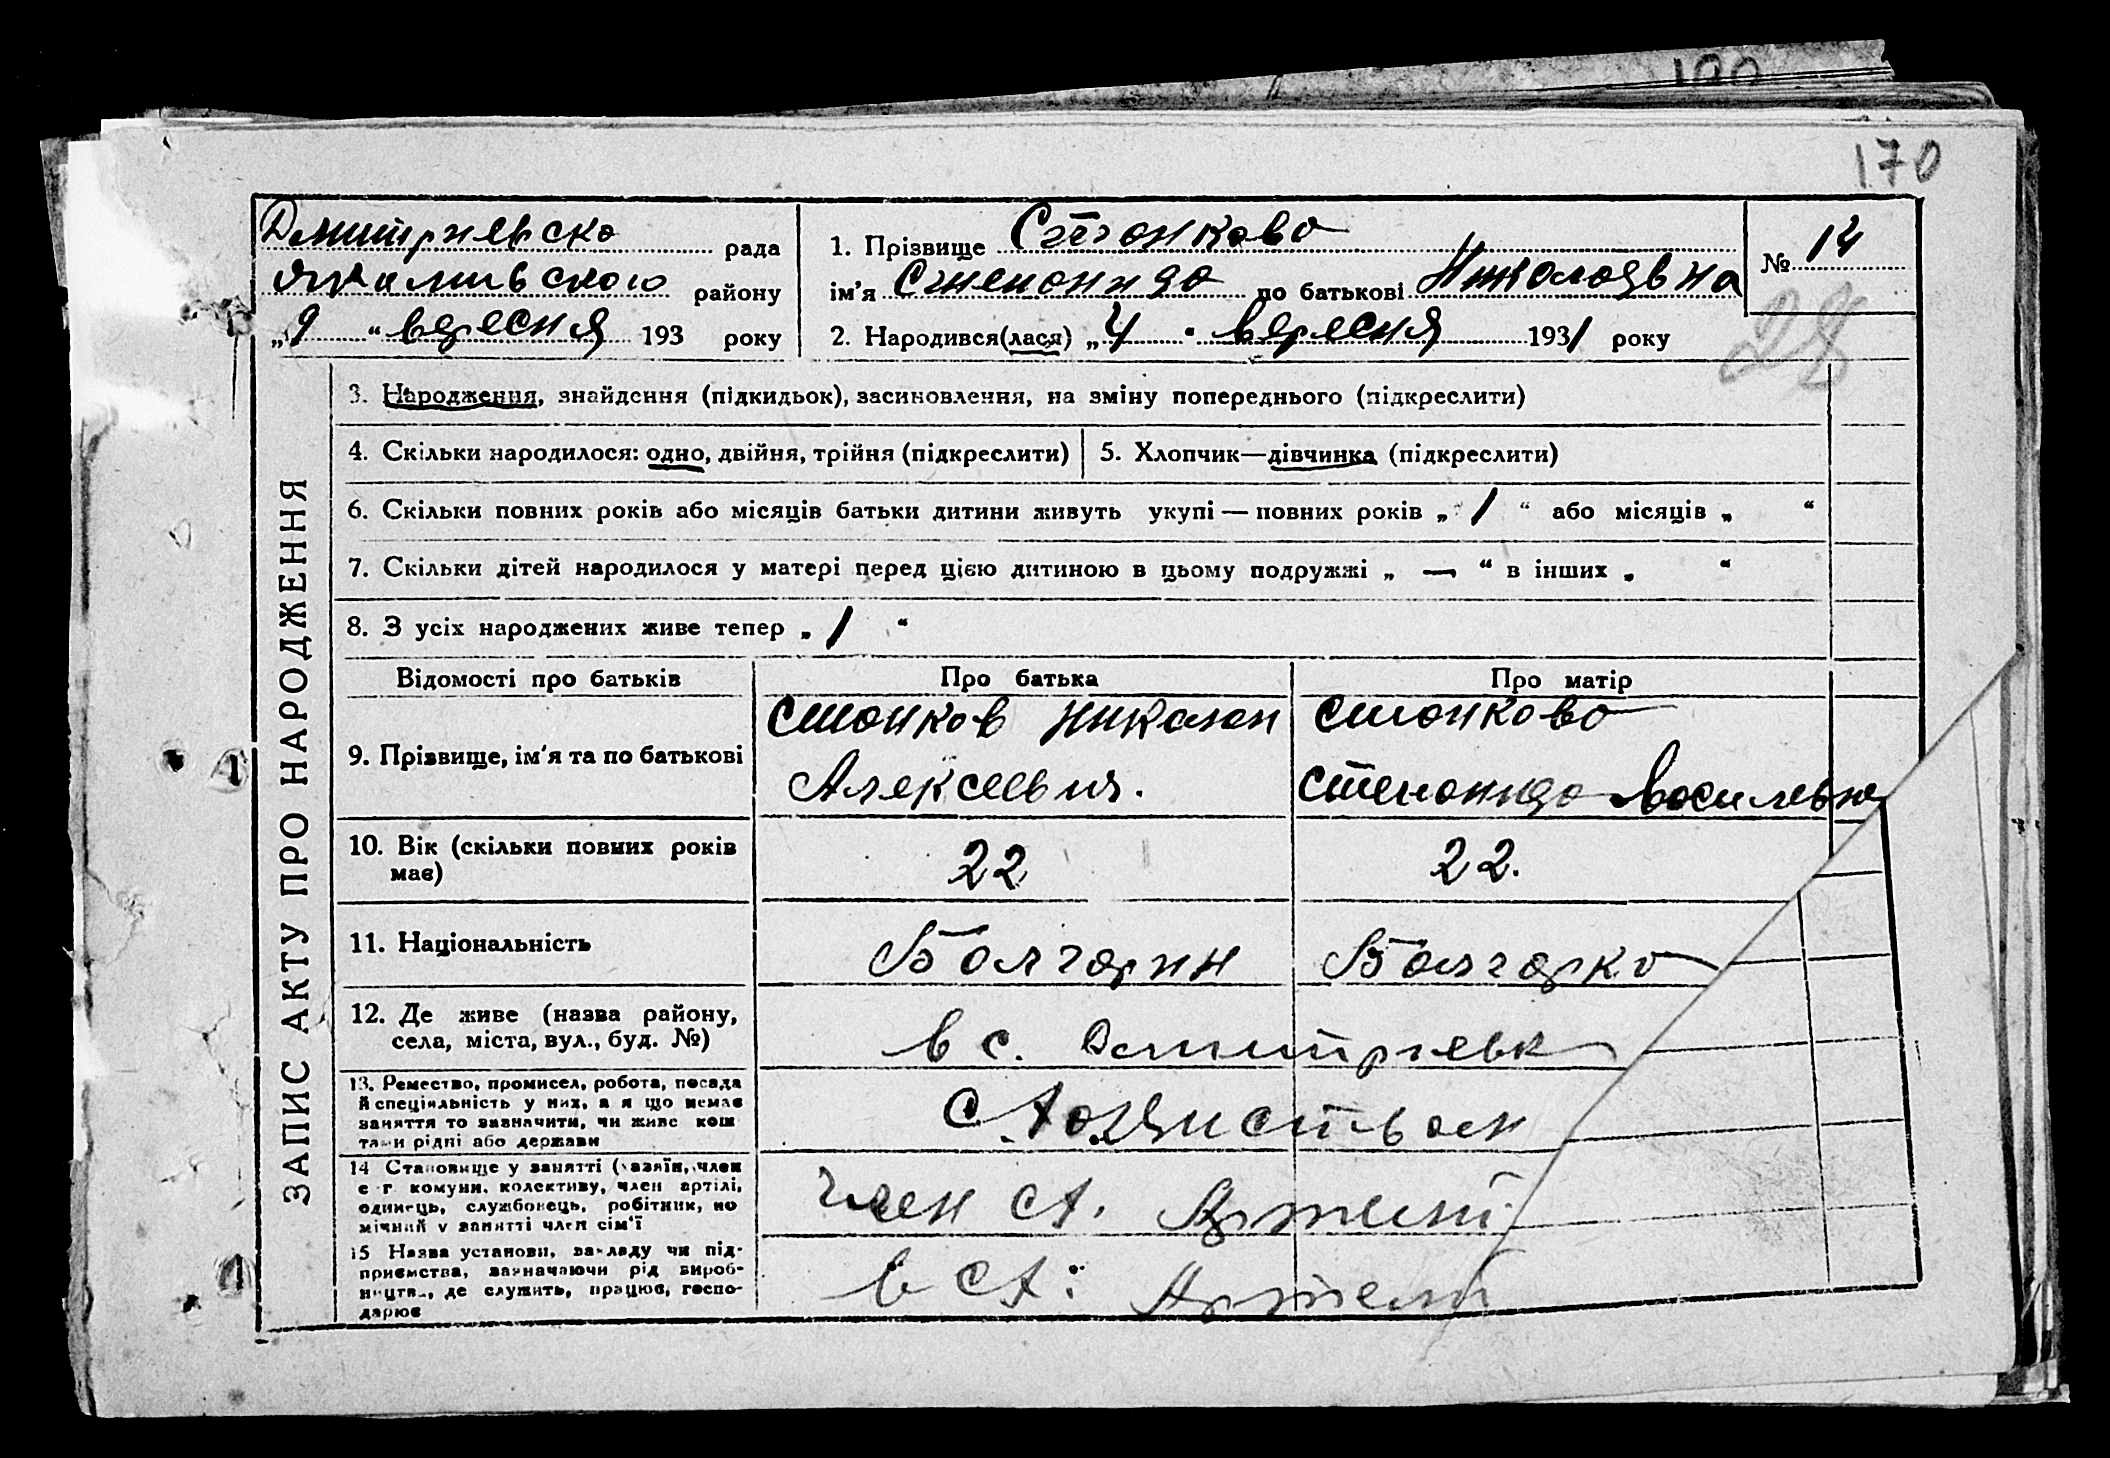 190
170
Дмитриевска рада
Якимивского району
„9“ вересня 193 року
1. Прізвище Стонкова
ім'я Степонида по батькові Николаевна
2. Народився(лася) „4“ вересня 1931 року
№ 14
28
ЗАПИС АКТУ ПРО НАРОДЖЕННЯ
3. Народження, знайдення (підкидьок), засиновлення, на зміну попереднього (підкреслити)
4. Скільки народилося: одно, двійня, трійня (підкреслити)
5. Хлопчик—дівчинка (підкреслити)
6. Скільки повних років або місяців батьки дитини живуть укупі — повних років „1“ або місяців „ “
7. Скільки дітей народилося у матері перед цією дитиною в цьому подружжі „—“ в інших „ “
8. З усіх народжених живе тепер „1“
Відомості про батьків
Про батька
Про матір
9. Прізвище, ім'я та по батькові
Стонков Николай
Алексеевич.
Стонкова
Степонида Васильевна
10. Вік (скільки повних років
має)
22
22.
11. Національність
Болгарин
Болгарка
12. Де живе (назва району,
села, міста, вул., буд. №)
в с. Дмитриевк
13. Ремество, промисел, робота, посада
й спеціяльність у них, а я що немає
заняття то зазначити, чи живе кош
тами рідні або держави
14 Становище у занятті (хазяїн, член
с-г. комуни, колективу, член артілі,
одинець, службовець, робітник, по
мічний у занятті член сім'ї
член сх. Артели
15 Назва установи, закладу чи під-
приємства, зазначаючи рід вироб-
ництв., де служить, працює, госпо-
дарює
в сх: Артели